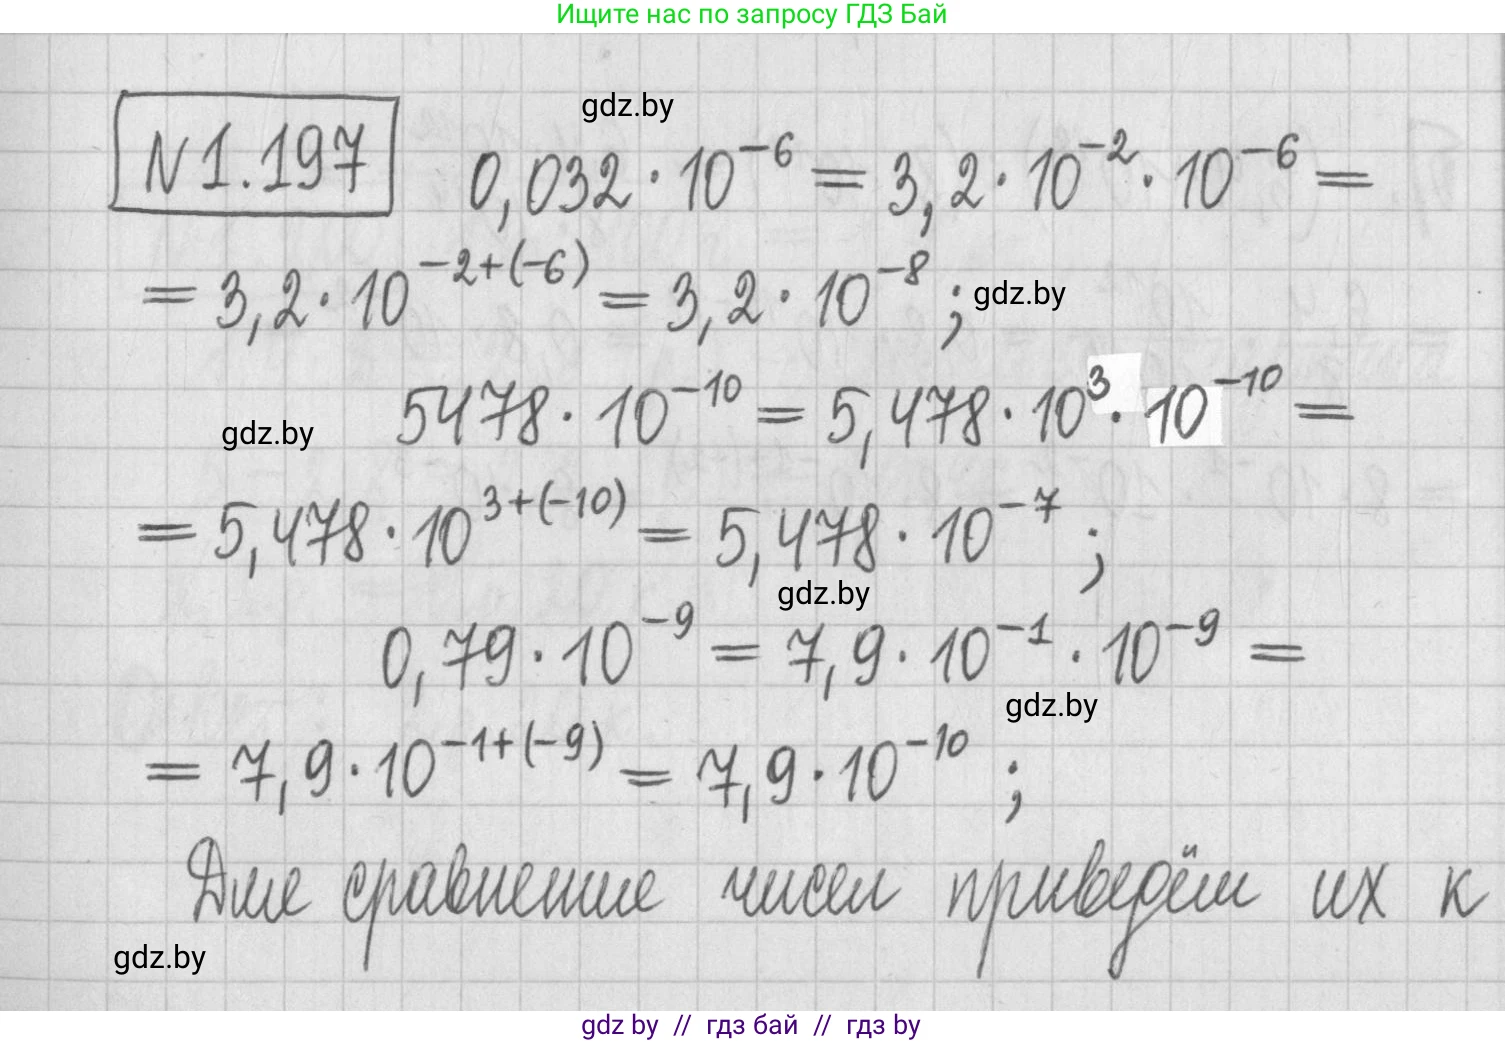 Ищите нас по запросу ГДЗ Бай
gdz.by
N 1.197 0,032 · 10⁻⁶ = 3,2 · 10⁻² · 10⁻⁶ =
= 3,2 · 10⁻²⁺⁽⁻⁶⁾ = 3,2 · 10⁻⁸ ;
gdz.by
5478 · 10⁻¹⁰ = 5,478 · 10³ · 10⁻¹⁰ =
gdz.by
= 5,478 · 10³⁺⁽⁻¹⁰⁾ = 5,478 · 10⁻⁷ ;
gdz.by
0,79 · 10⁻⁹ = 7,9 · 10⁻¹ · 10⁻⁹ =
gdz.by
= 7,9 · 10⁻¹⁺⁽⁻⁹⁾ = 7,9 · 10⁻¹⁰ ;
Для сравнение чисел приведём их к
gdz.by
gdz by // гдз бай // гдз by